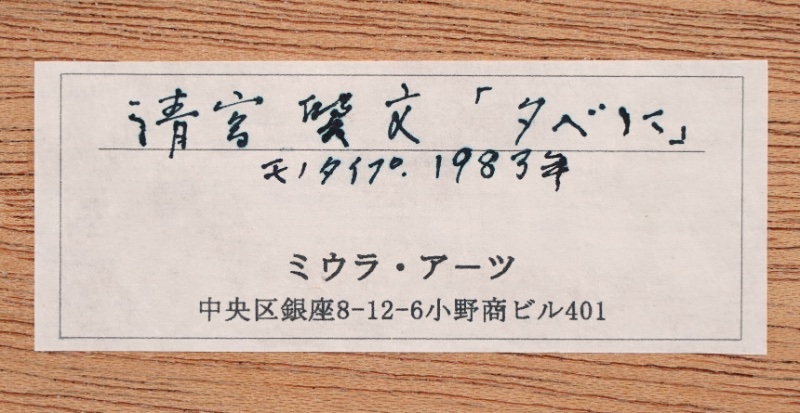 清宮質文「夕べに」
モノタイプ. 1983年
ミウラ・アーツ
中央区銀座8-12-6小野商ビル401